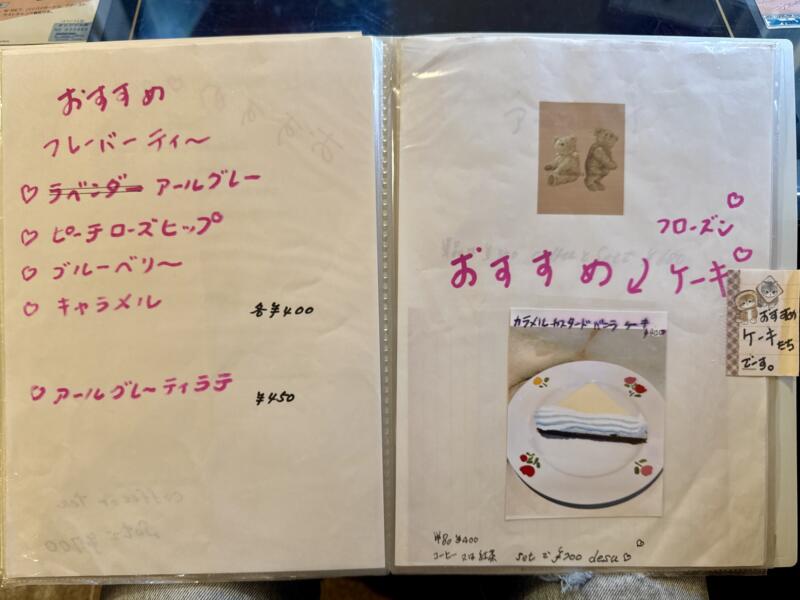 おすすめ
フレーバーティ〜
♡ ラベンダー アールグレー
♡ ピーチローズヒップ
♡ ブルーベリ〜
♡ キャラメル 各¥400
♡ アールグレーティラテ ¥450
coffee or Tea
setで¥700
フローズン♡
おすすめ ケーキ♡
カラメルカスタードバニラケーキ
¥400
おすすめ
ケーキたち
でーす。
単品 ¥400
コーヒー 又は 紅茶 setで¥700 desu♡